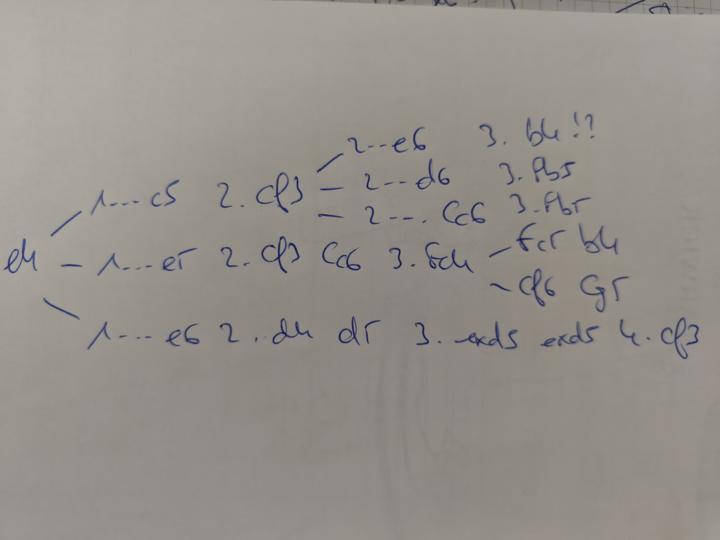 2--e6 3. b4!?
1---c5 2. Cf3 2--d6 3. Fb5
2--. Cc6 3. Fb5
e4 1---e5 2. Cf3 Cc6 3. Fc4 Fc5 b4
Cf6 Cg5
1---e6 2. d4 d5 3. exd5 exd5 4. Cf3